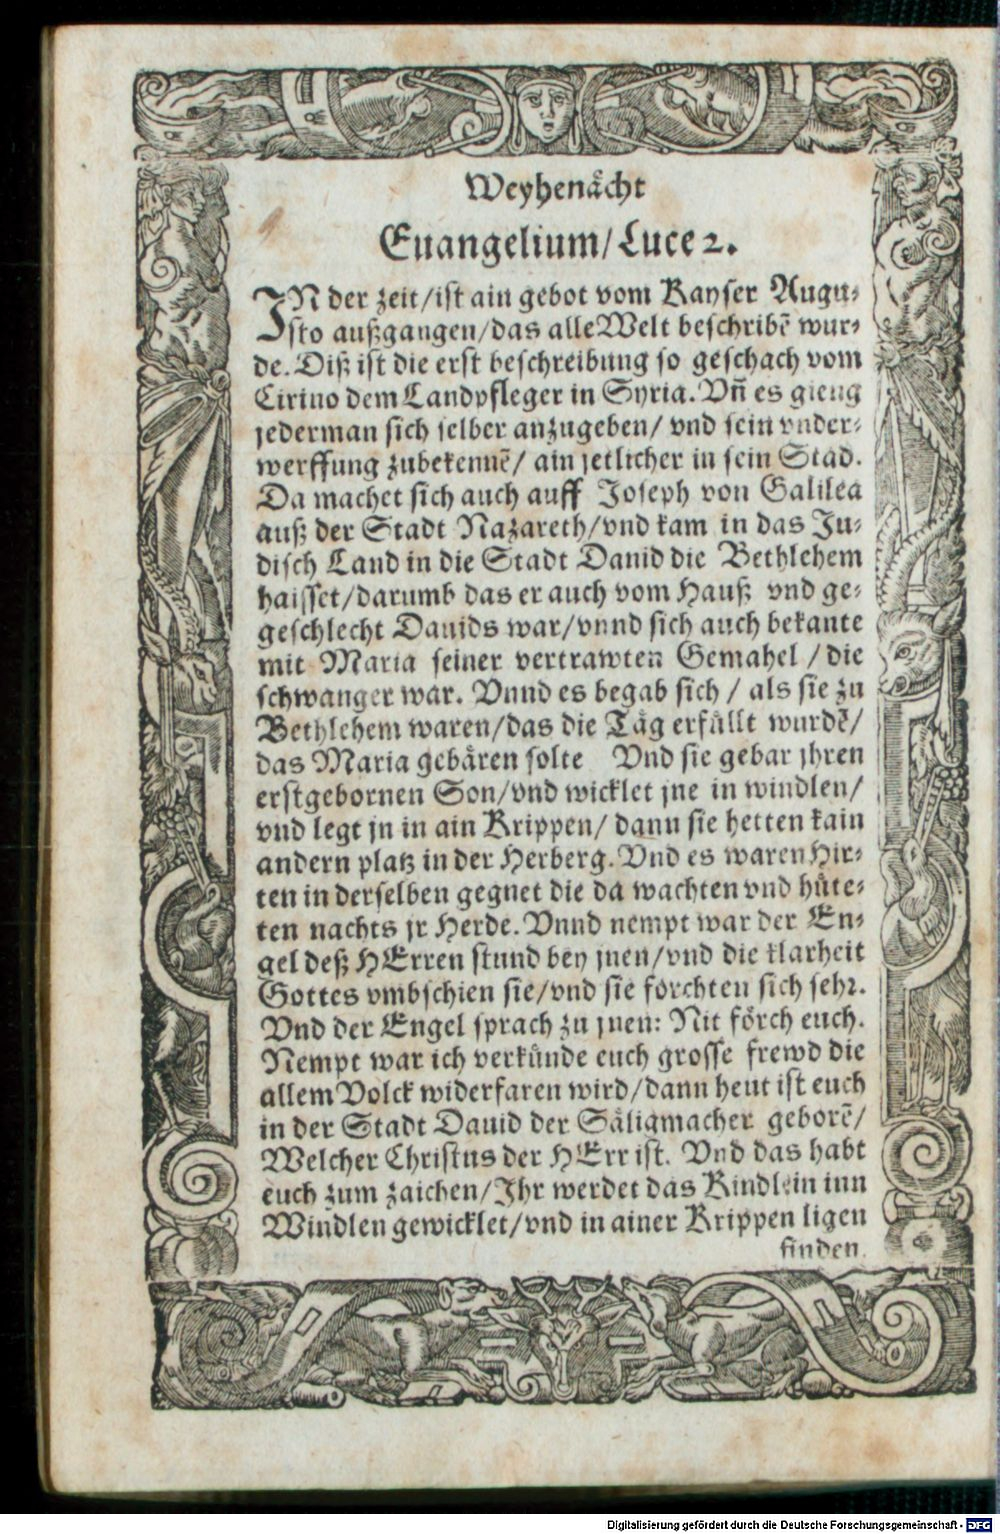 Weyhenächt
Euangelium/ Luce 2.
IN der zeit/ist ain gebot vom Kayser Augu-
sto außgangen/das alle Welt beschribẽ wur-
de. Diß ist die erst beschreibung so geschach vom
Cirino dem Landpfleger in Syria. Vñ es gieng
jederman sich selber anzugeben/ vnd sein vnder-
werffung zubekennẽ/ ain jetlicher in sein Stad.
Da machet sich auch auff Joseph von Galilea
auß der Stadt Nazareth/vnd kam in das Ju-
disch Land in die Stadt Dauid die Bethlehem
haisset/darumb das er auch vom Hauß vnd ge-
geschlecht Dauids war/vnnd sich auch bekante
mit Maria seiner vertrawten Gemahel / die
schwanger war. Vnnd es begab sich / als sie zu
Bethlehem waren/das die Täg erfüllt wurdẽ/
das Maria gebären solte Vnd sie gebar jhren
erstgebornen Son/vnd wicklet jne in windlen/
vnd legt jn in ain Krippen/ dann sie hetten kain
andern platz in der Herberg. Vnd es waren Hir-
ten in derselben gegnet die da wachten vnd hüte-
ten nachts jr Herde. Vnnd nempt war der En-
gel deß HErren stund bey jnen/vnd die klarheit
Gottes vmbschien sie/vnd sie forchten sich sehr.
Vnd der Engel sprach zu jnen: Nit förch euch.
Nempt war ich verkünde euch grosse frewd die
allem Volck widerfaren wird/dann heut ist euch
in der Stadt Dauid der Säligmacher geborẽ/
Welcher Christus der HErr ist. Vnd das habt
euch zum zaichen/Jhr werdet das Kindlein inn
Windlen gewicklet/vnd in ainer Krippen ligen
finden.
Digitalisierung gefördert durch die Deutsche Forschungsgemeinschaft - DFG